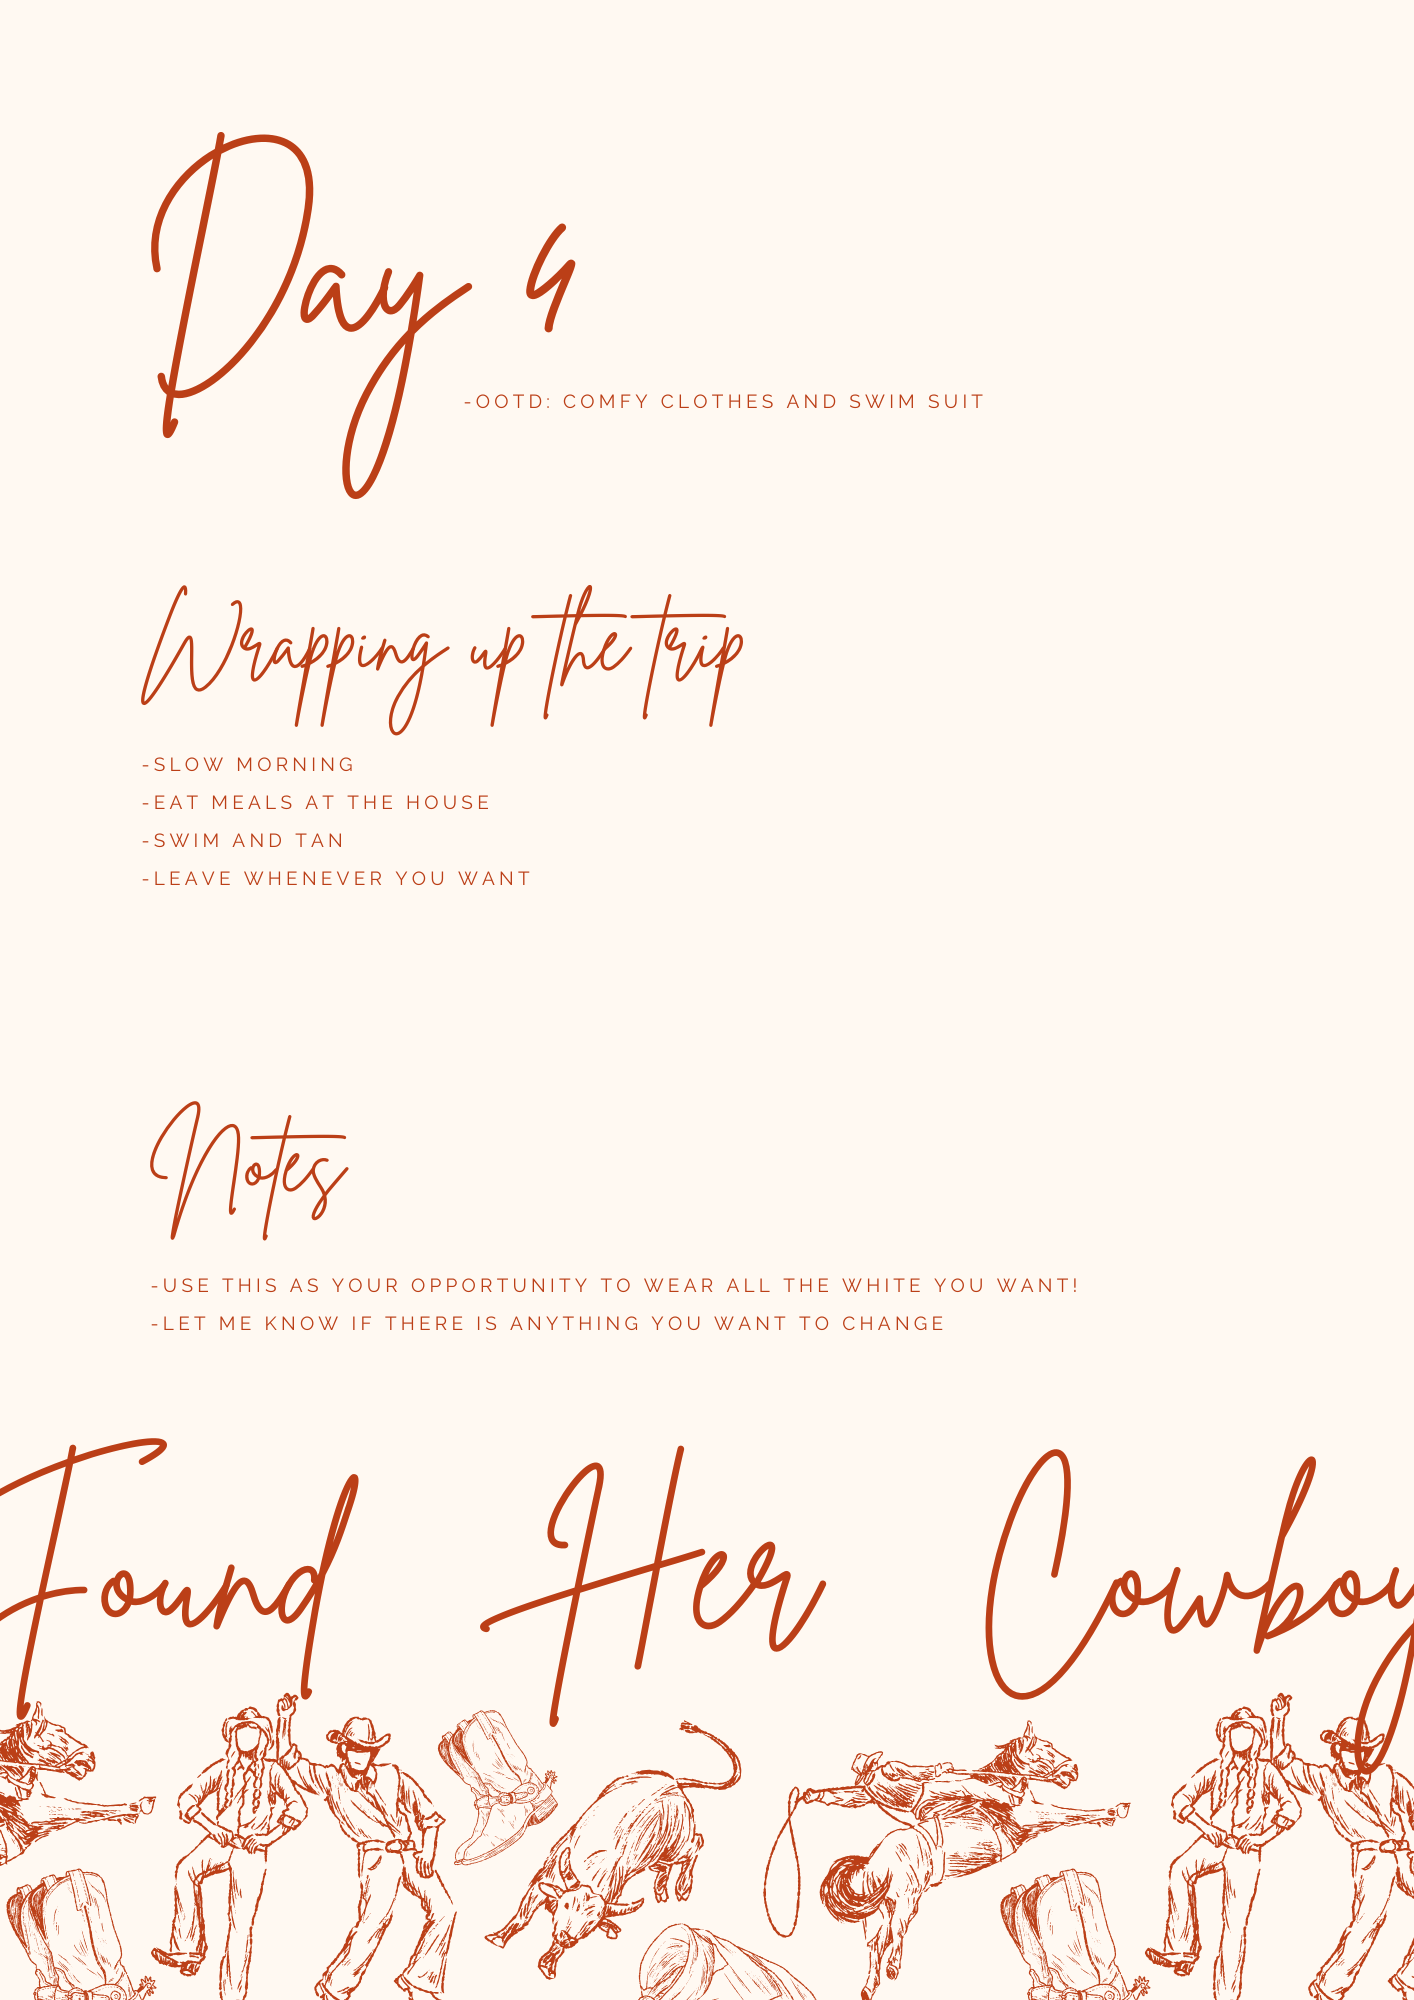 Day 4
-OOTD: COMFY CLOTHES AND SWIM SUIT
Wrapping up the trip
-SLOW MORNING
-EAT MEALS AT THE HOUSE
-SWIM AND TAN
-LEAVE WHENEVER YOU WANT
Notes
-USE THIS AS YOUR OPPORTUNITY TO WEAR ALL THE WHITE YOU WANT!
-LET ME KNOW IF THERE IS ANYTHING YOU WANT TO CHANGE
Found Her Cowboy